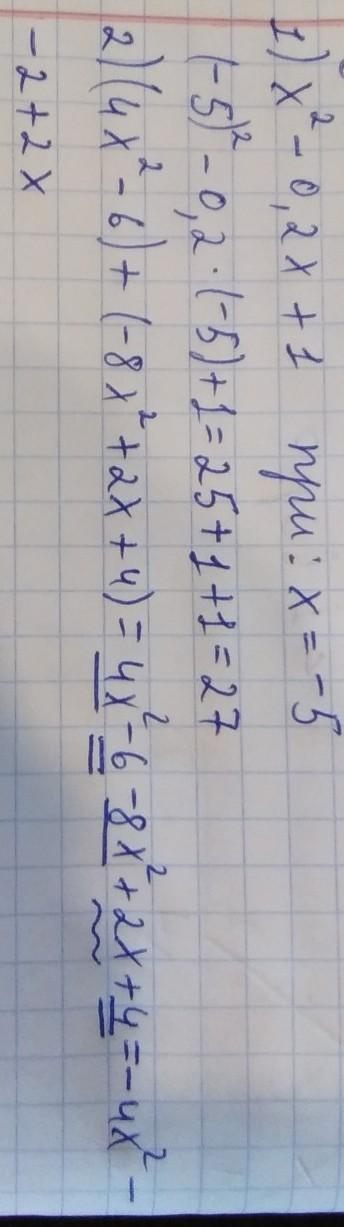 1) x² - 0,2x + 1 при: x = -5
(-5)² - 0,2 · (-5) + 1 = 25 + 1 + 1 = 27
2) (4x² - 6) + (-8x² + 2x + 4) = 4x² - 6 - 8x² + 2x + 4 = -4x² -
- 2 + 2x